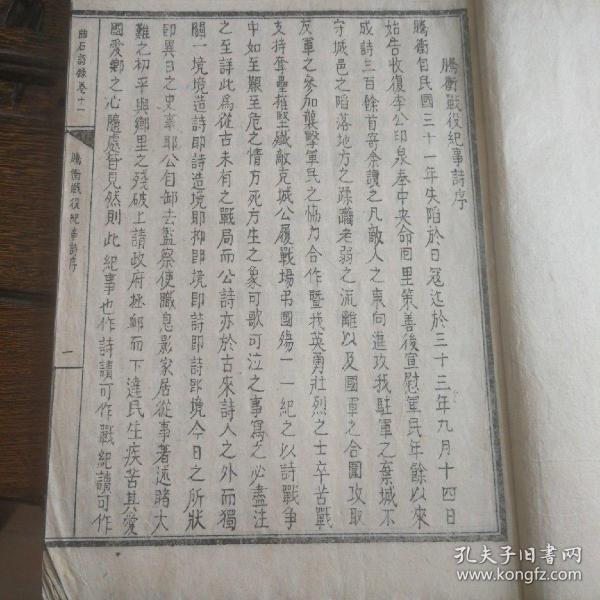 騰衝戰役紀事詩序
騰衝自民國三十一年失陷於日寇迄於三十三年九月十四日
始告收復李公印泉奉中央命回里策善後宣慰軍民年餘以來
成詩三百餘首寄余讀之凡敵人之裏向進攻我駐軍之棄城不
守城邑之陷落地方之蹂躪老弱之流離以及國軍之合圍攻取
友軍之參加襲擊軍民之協力合作暨我英勇壯烈之士卒苦戰
支持奪壘摧堅殲敵克城公履戰場弔國殤一一紀之以詩戰爭
中如至艱至危之情方死方生之象可歌可泣之事寫之必盡注
之至詳此為從古未有之戰局而公詩亦於古來詩人之外而獨
闢一境境造詩耶詩造境耶抑即境即詩即詩即境今日之所狀
即異日之史事耶公自卸去監察使職息影家居從事著述睹大
難之初平與鄉里之殘破上請政府拯卹而下達民生疾苦其愛
國愛鄉之心隨處皆見然則此紀事也作詩讀可作戰紀讀可作
曲石詩錄卷十一
騰衝戰役紀事詩序
一
孔夫子旧书网
www.kongfz.com